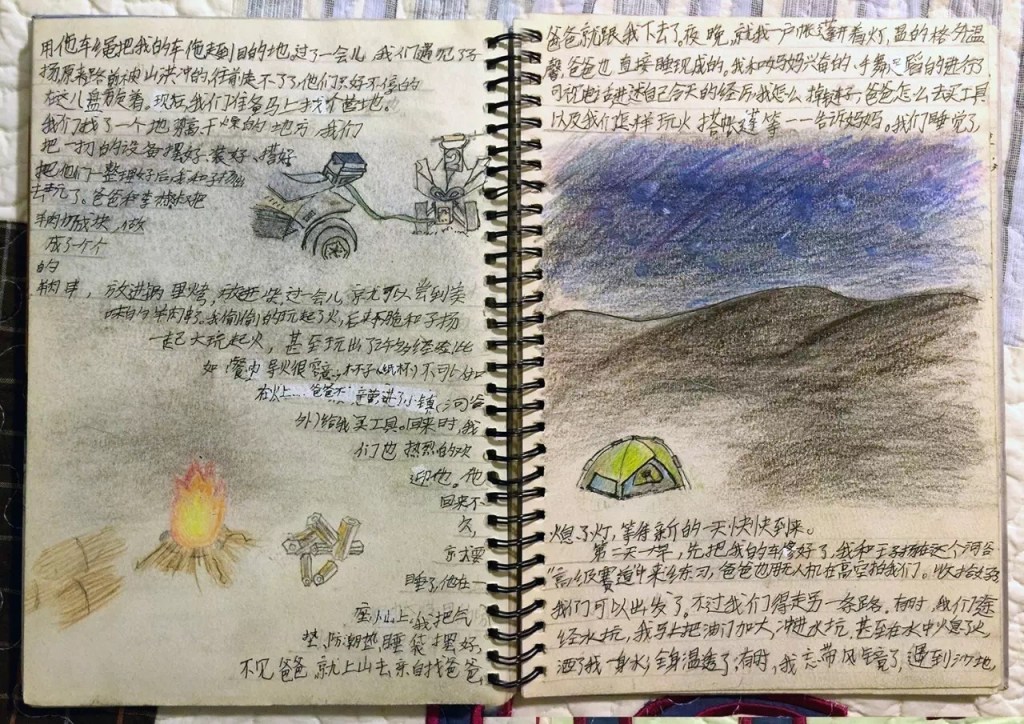 用他车绳把我的车拖走到目的地。过了一会儿,我们遇见了子
扬原着路前被山洪冲的往前走不了了,他们只好不停的
在这儿盘旋着。现在,我们准备马上找扎营地。
我们找了一个地干燥的地方,我们
把一切的设备摆好、装好、搭好
把他们一整理好后,我和子扬
去玩了。爸爸和李
羊肉切成块,做
成了一个个
的
肉串,放进锅里烤,放进柴,过一会儿,就可以尝到美
味的羊肉串了。我偷偷的玩起了火,后来跑和子扬
一起大玩起火,甚至玩出了许多经验比
如餐巾导火很容易,杯子(纸杯)不可以
在火上…爸爸不进了小镇(河谷
外)给我买工具。回来时,我
们也热烈的欢
迎他。他
回来不
久,
就要
睡了,他在一
座山上,我把气
垫、防潮垫、睡袋摆好,
不见爸爸,就上山去亲自找爸爸
爸爸就跟我下去了。夜晚,就我一户帐篷开着灯,显的格外温
馨,爸爸也直接睡现成的。我和妈妈兴奋的、手舞足蹈的进行了
可视电话讲述自己今天的经历,我怎么掉链子,爸爸怎么去买工具
以及我们怎样玩火、搭帐篷等一一告诉妈妈。我们睡觉了,
熄了灯,等待新的一天快快到来。
第二天一早,先把我的车修好了,我和王子扬在这个河谷
“高级赛道”中来练习,爸爸也用无人机在高空拍我们。收拾好
我们可以出发了。不过我们得走另一条路。有时,我们途
经水坑,我马上把油门加大,冲进水坑,甚至在水中熄了火
洒了我一身水,全身湿透了,有时,我忘带风镜了,遇到沙地